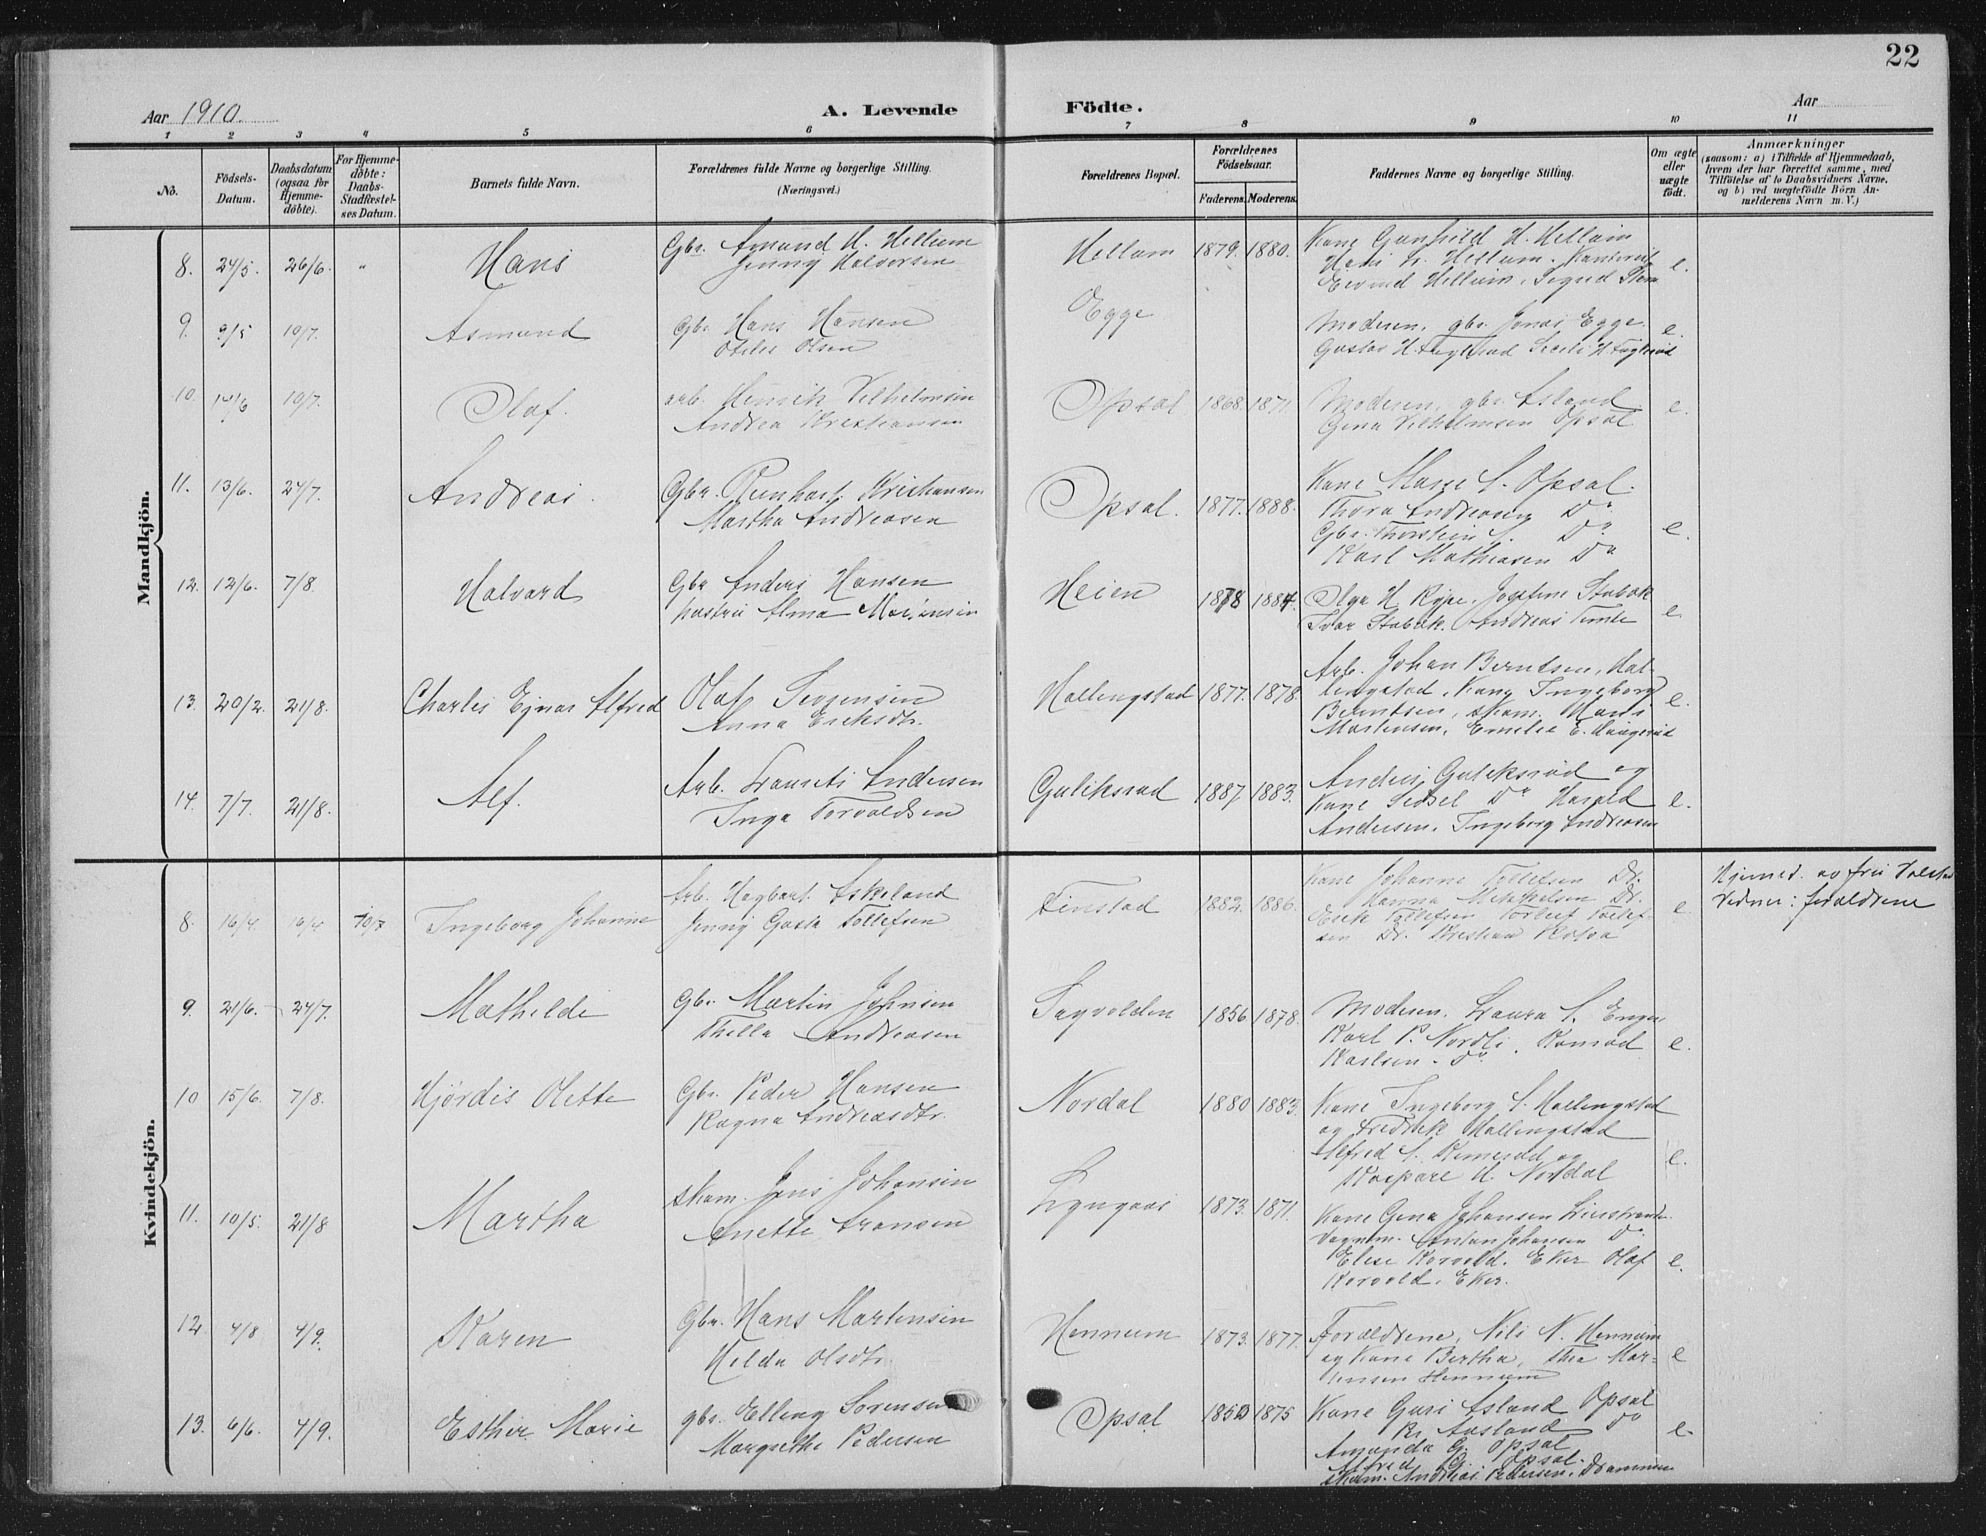 22
Aar 1910.
A. Levende
Födte.
Aar
1 2 3 4 5 6 7 8 9 10 11
No.
Födsels-Datum.
Daabsdatum (ogsaa for Hjemme-döbte).
For Hjemme-döbte: Daabs-Stadfæstel-ses Datum.
Barnets fulde Navn.
Forældrenes fulde Navne og borgerlige Stilling.
(Næringsvei.)
Forældrenes Bopæl.
Forældrenes Födselsaar.
Faderens. Moderens.
Faddernes Navne og borgerlige Stilling.
Om ægte eller uægte födt.
Anmærkninger
(saasom: a) i Tilfælde af Hjemmedaab,
hvem der har forrettet samme, med
Tilföielse af to Daabsvidners Navne,
og b) ved uægtefödte Börn An-
melderens Navn m. V.)
Mandkjön.
8. 24/5. 26/6. " Hans
Gbr. Amund H. Hellum
Jenny Halvorsen
Hellum 1879. 1880.
Kone Gunhild H. Hellum
Hans Hellum.
Eivind Hellum. Sigrid
e.
9. 9/5 10/7. Asmund
Gbr. Hans Hansen
Otilie Olsen
Egge
Moderen, gbr. Jonas Egge.
Gustav H.
e.
10. 14/6 10/7. Olaf.
arb. Henrik Vilhelmsen
Andrea Kristiansen
Opsal 1868. 1871
Moderen, gbr. Asland
Gina Vilhelmsen Opsal
e.
11. 13/6. 24/7. Andreas.
Gbr. Reinhart Kristiansen
Martha Andreasen
Opsal. 1877. 1888.
Kone Marie S. Opsal.
Thora Andreasen Do
Gbr. Thorstein S. Do
Karl Mathiasen Do
e.
12. 12/6. 7/8. Halvard
Gbr Anders Hansen
hustru Alma
Heien 1878 1884.
Olga H. Rype. Josefine Stabæk
Ivar Stabæk. Andreas Temte
e.
13. 20/2. 21/8. Charles Ejnar Alfred
Olaf
Anna Eriksdtr.
Hallingstad 1877. 1878.
Arb. Johan Berntsen, Hal-
lingstad, Kone Ingeborg
Berntsen, skom. Hans
Martensen, Emelie E.
e.
14. 7/7. 21/8. Alf.
Arb. Laurits Andersen
Inga Torvaldsen
Guliksrud 1887 1883.
Anders Guliksrud og
Kone Sidsel Do Harald
Andersen. Ingeborg Andreasen
e.
Kvindekjön.
8. 16/4. 16/4 10/7 Ingeborg Johanne
Arb. Hagbart Askeland
Jenny Tollefsen
Finstad 1882. 1886.
Kone Johanne Tollefsen Do.
Hanna Mikkelsen Do.
Erik Tollefsen Torleif Tollef-
sen Do. Kristian
e.
Hjemmed. av fru
Vidner: forældrene
9. 21/6. 24/7. Mathilde
Gbr. Martin Johnsen
Thilla Andreasen
Sagvolden 1856 1878.
Moderen. Laura S. Enger
Karl P. Nordli. Konrad
Karlsen. Do
e.
10 15/6. 7/8. Hjørdis Olette
Gbr. Peder Hansen
Ragna Andreasdtr.
Nordal 1880 1883.
Kone Ingeborg S. Hallingstad
og Fredrik Hallingstad
Alfred S. og
Kaspare H. Nordal
e.
11. 10/5. 21/8 Martha
skom. Jens Johansen
Anette Fransen
Lyngaas 1873. 1871.
Kone Gina Johansen
Anton Johansen Do
Elise Korvold. Eker Olaf
Korvold. Eker.
e.
12. 4/8 4/9. Karen
Gbr. Hans Martensen
Helda Olsdtr.
Hennum 1873. 1877.
Forældrene, Nils N. Hennum
og Kone Bertha, Thea Mar-
tensen Hennum
e
13. 6/6. 4/9. Esther Marie
gbr. Elling Sorensen
Margrethe Pedersen
Opsal. 1875
Kone Guri Asland Opsal
Kr. Aasland Do
Amanda G. Opsal
Alfred G. Opsal.
skom. Andreas Pedersen, Drammen
e.